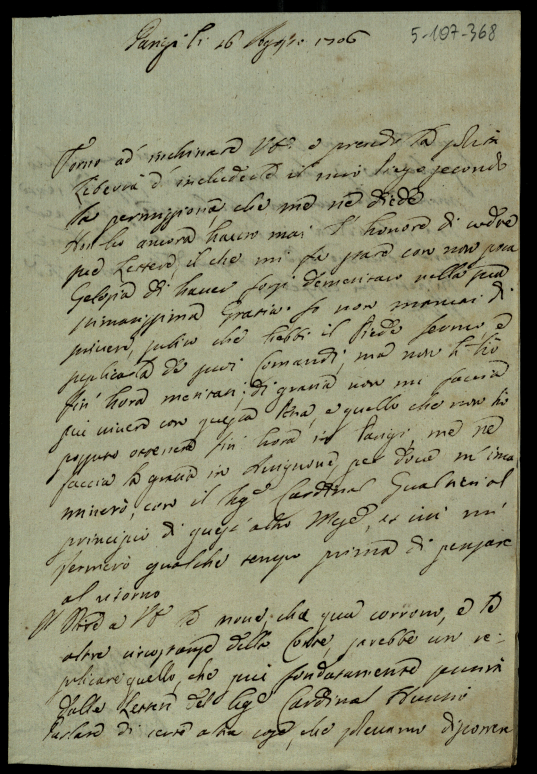 5-107-368
Parigi li 26 Agosto 1706
Torno ad inchinare VS e prendo la solita
libertà d'includerle il mio secondo
la permissione che me ne diede
Non ho ancora hauto mai l'honore di vedere
sue lettere, il che mi fa stare con non poca
Gelosia di hauer forsi demeritato nella sua
stimatissima Gratia. Io non mancai di
scriuere, subito che hebbi il Piede fermo e
replicarla de suoi Comandi, ma non li ho
sin' hora meritati; di gratia non mi faccia
più uiuere con questa, e quello che non ho
possuto ottenere sin' hora in Parigi, me ne
faccia la gratia in Auignone per doue m'inca
minerò, con il Sigr Cardinal Gualtieri al
principio di quest' altro Mese, et iui mi
fermerò qualche tempo prima di pensare
al ritorno
Il dire a VS le noue, che qua corrono, e le
altre circostanze della Corte, sarebbe un re-
plicare quello, che più fondatamente sentirà
dalle lettere del Sigr Cardinal
Parlare di certe altre cose, che soleuamo discorrere